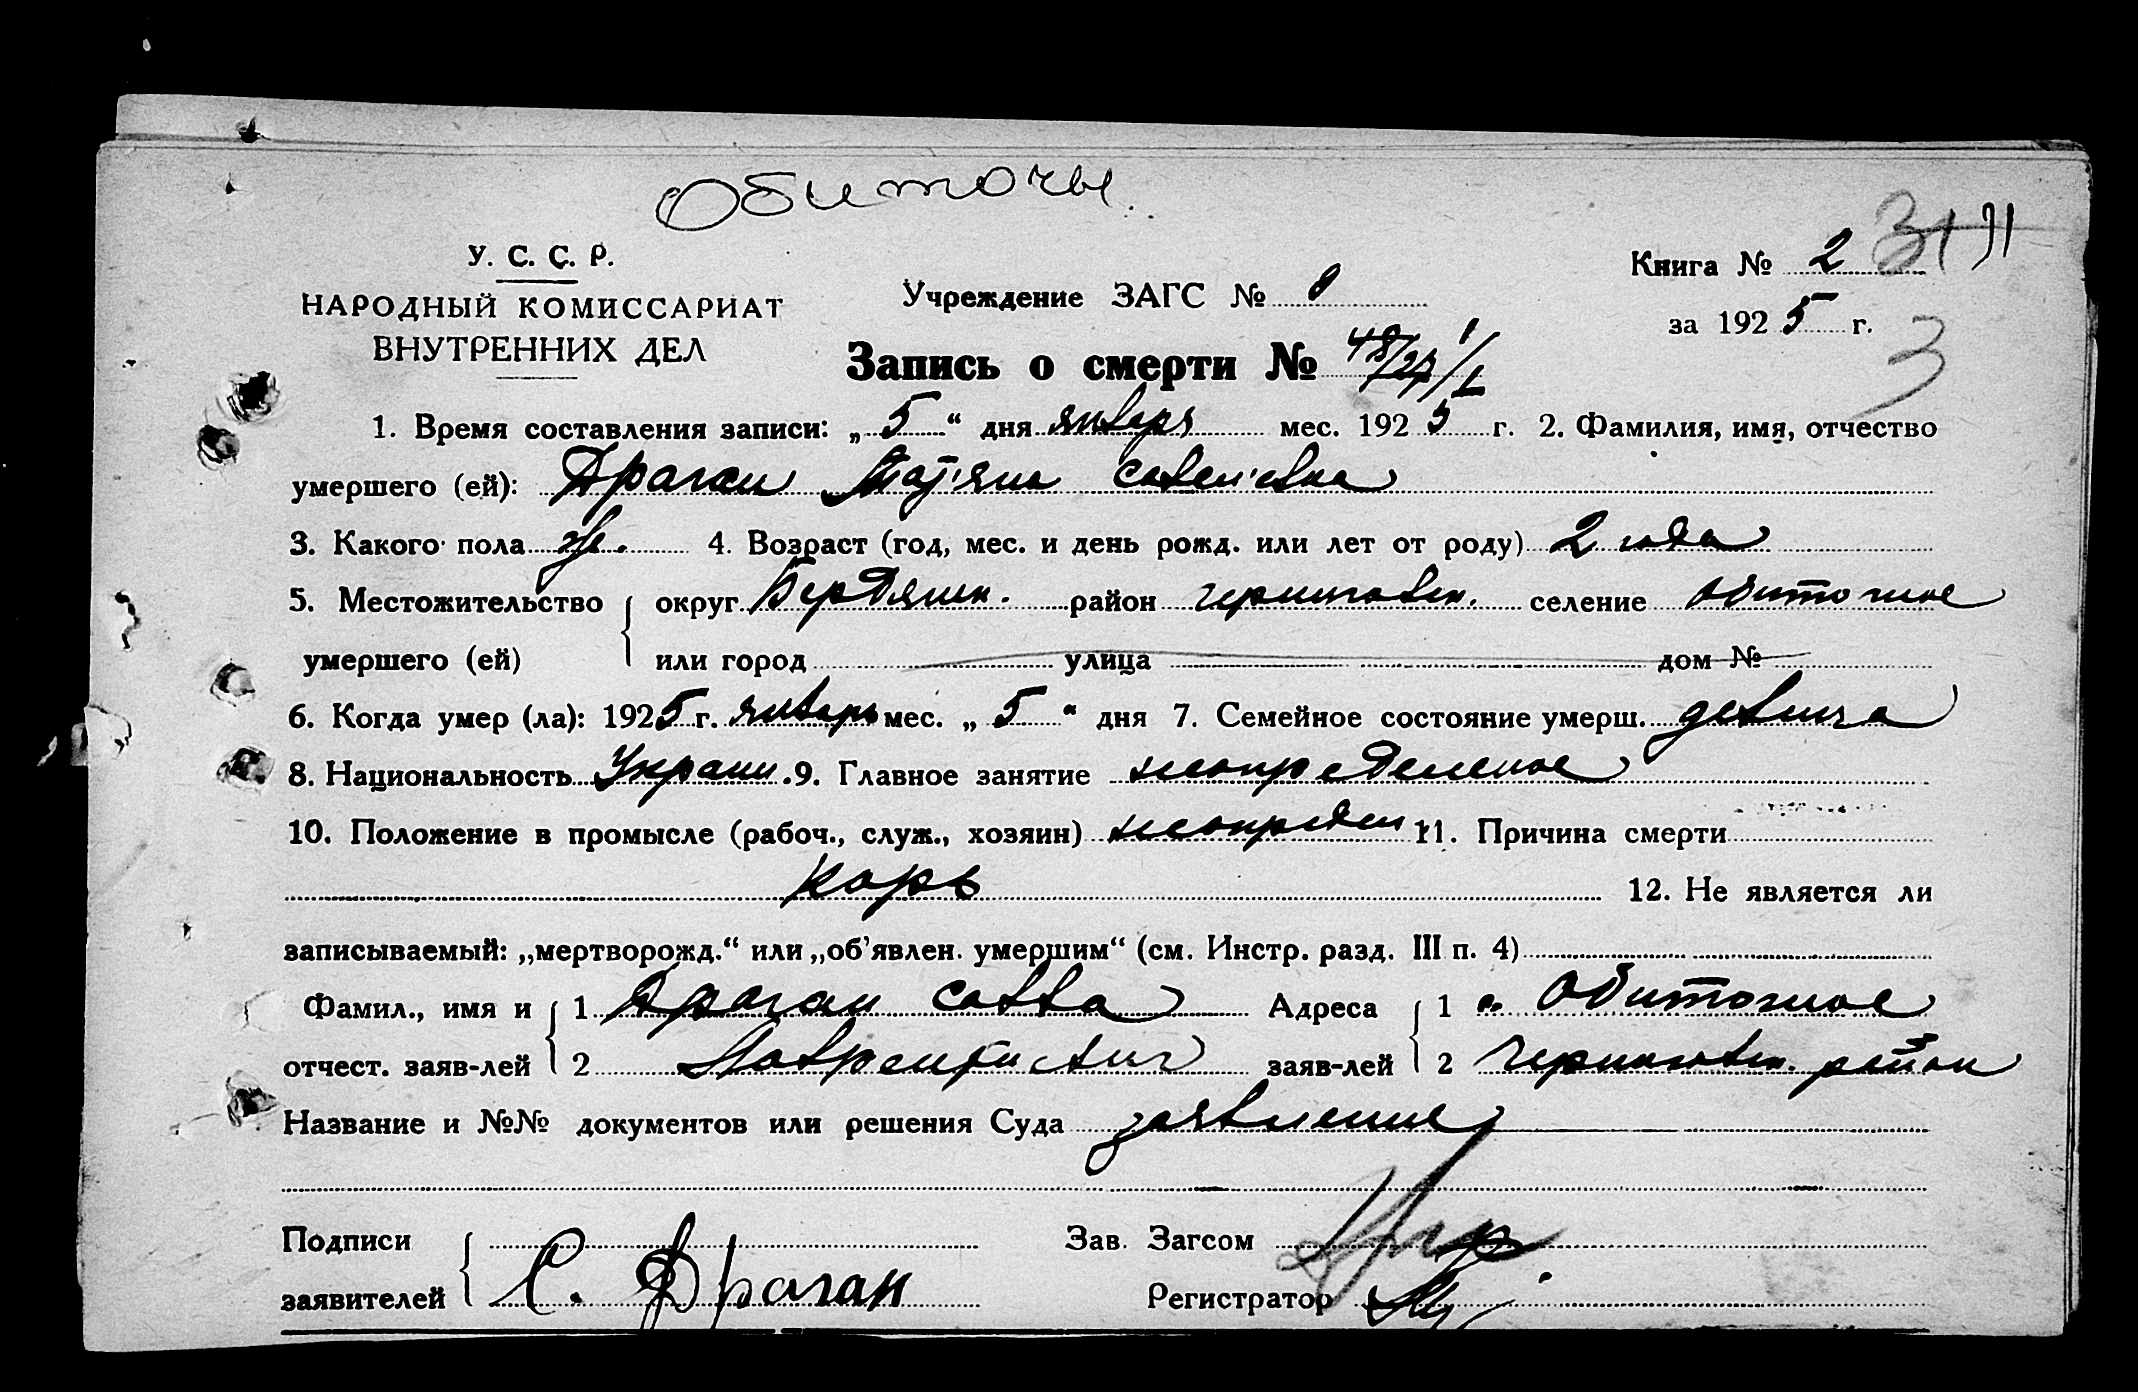 Обиточн.
У. С. С. Р.
НАРОДНЫЙ КОМИССАРИАТ
ВНУТРЕННИХ ДЕЛ
Учреждение ЗАГС №
Книга № 2 31
за 1925 г.
3
Запись о смерти № 1/I
1. Время составления записи: „5“ дня января мес. 1925 г. 2. Фамилия, имя, отчество
умершего (ей): Драган Татьяна
3. Какого пола ж. 4. Возраст (год, мес. и день рожд. или лет от роду) 2 года
5. Местожительство округ Бердянск. район черниговск. селение Обиточное
умершего (ей) или город улица дом №
6. Когда умер (ла): 1925 г. январь мес. „5“ дня 7. Семейное состояние умерш. девица
8. Национальность Украин. 9. Главное занятие неопределеное
10. Положение в промысле (рабоч., служ., хозяин) неопределен 11. Причина смерти
корь 12. Не является ли
записываемый: „мертворожд.“ или „об'явлен. умершим“ (см. Инстр. разд. III п. 4)
Фамил., имя и 1 Драган Савва Адреса 1 с. Обиточное
отчест. заяв-лей 2 Лаврентиевич заяв-лей 2 Черниговск. район
Название и №№ документов или решения Суда заявление
Подписи Зав. Загсом
заявителей С. Драган Регистратор